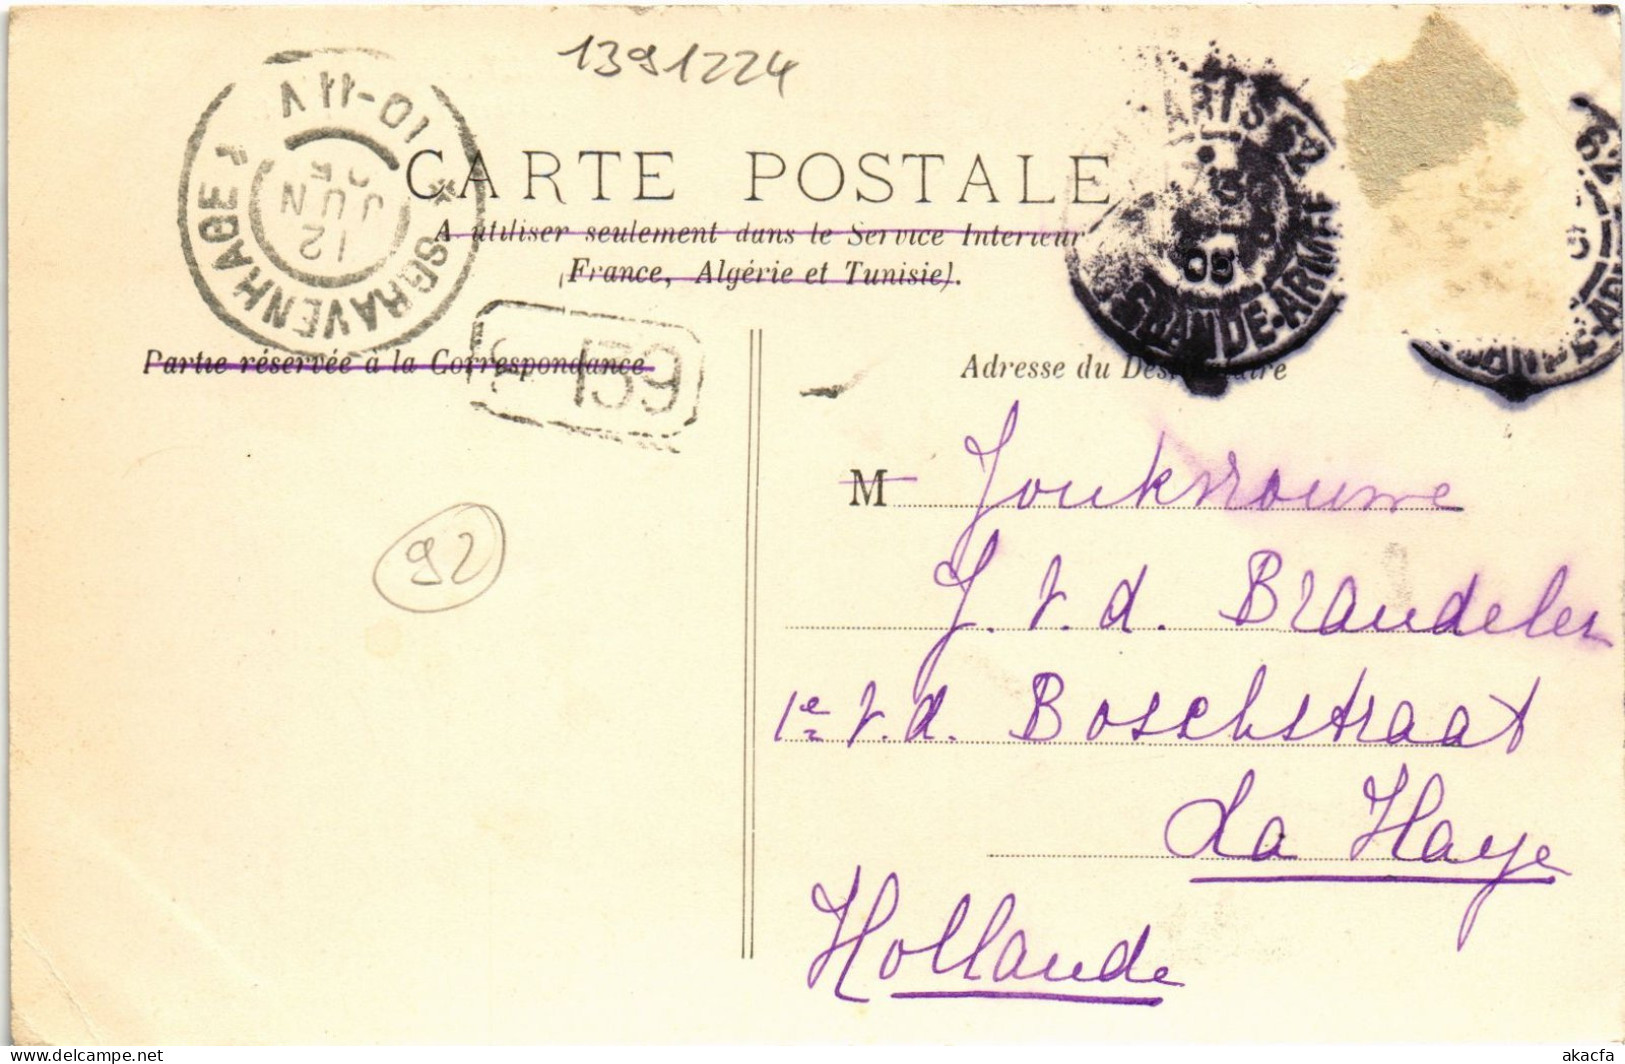 1391224
10-11 V
12 JUN 05
SGRAVENHAGE
CARTE POSTALE
A utiliser seulement dans le Service Interieur
(France, Algérie et Tunisie).
PARIS 62
05
GRANDE-ARMÉE
62
Partie réservée à la Correspondance
159
Adresse du Destinataire
M Jonkvrouwe
J. v. d. Brandeler
1e v. d. Boschstraat
La Haye
Hollande
92
delcampe.net
akacfa